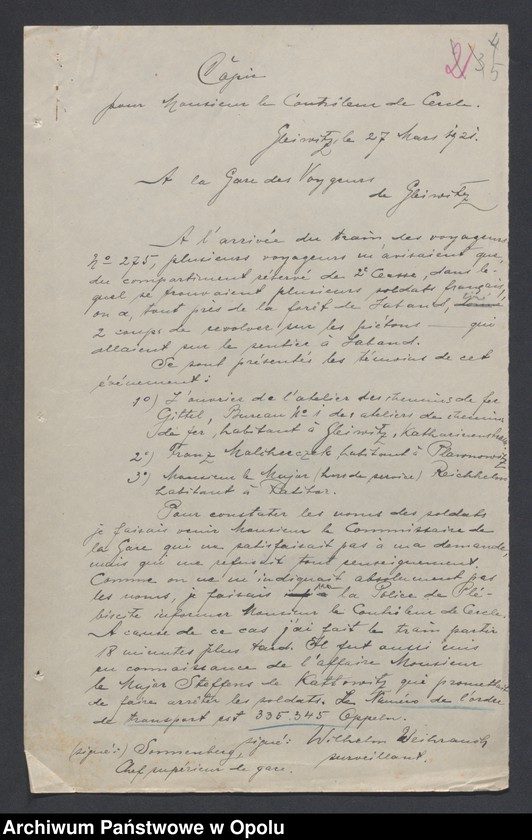 2 3 4 5
Côpie
pour Monsieur le Contrôleur de Cercle.
Gleiwitz, le 27 Mars 1921.
A la Gare des Voygeurs
de Gleiwitz
A l'arrivée du train des voyageurs
No 275, plusieurs voyageurs m'avisaient que
du compartiment réservé de 2e Classe, dans le-
quel se trouvaient plusieurs soldats français,
on a, tout près de la forêt de Laband,
2 coups de revolver sur les piétons — qui
allaient sur le sentier à Laband.
Se sont présentés les témoins de cet
événement:
1o) L'ouvrier de l'atelier des chemins de fer
Gittel, Bureau No 1 des ateliers de chemin
de fer, habitant à Gleiwitz,
2o) Franz Malcherczek habitant à
3o) Monsieur le Major (hors de service) Reichhelm
habitant à Ratibor.
Pour constater les noms des soldats
je faisais venir Monsieur le Commissaire de
la Gare qui ne satisfaisait pas à ma demande,
mais qui me refusait tout renseignement.
Comme on ne m'indiquait absolument pas
les noms, je faisais par la Police de Plé-
biscite informer Monsieur le Contrôleur de Cercle.
A cause de ce cas j'ai fait le train partir
18 minutes plus tard. Il fut aussi mis
en connaissance de l'affaire Monsieur
le Major Steffens de Kattowitz qui promettait
de faire arrêter les soldats. Le Numéro de l'ordre
de transport est 335.345 Oppeln.
(signé:) Sonnenberg, signé: Wilhelm
Chef supérieur de gare. surveillant.
Archiwum Państwowe w Opolu